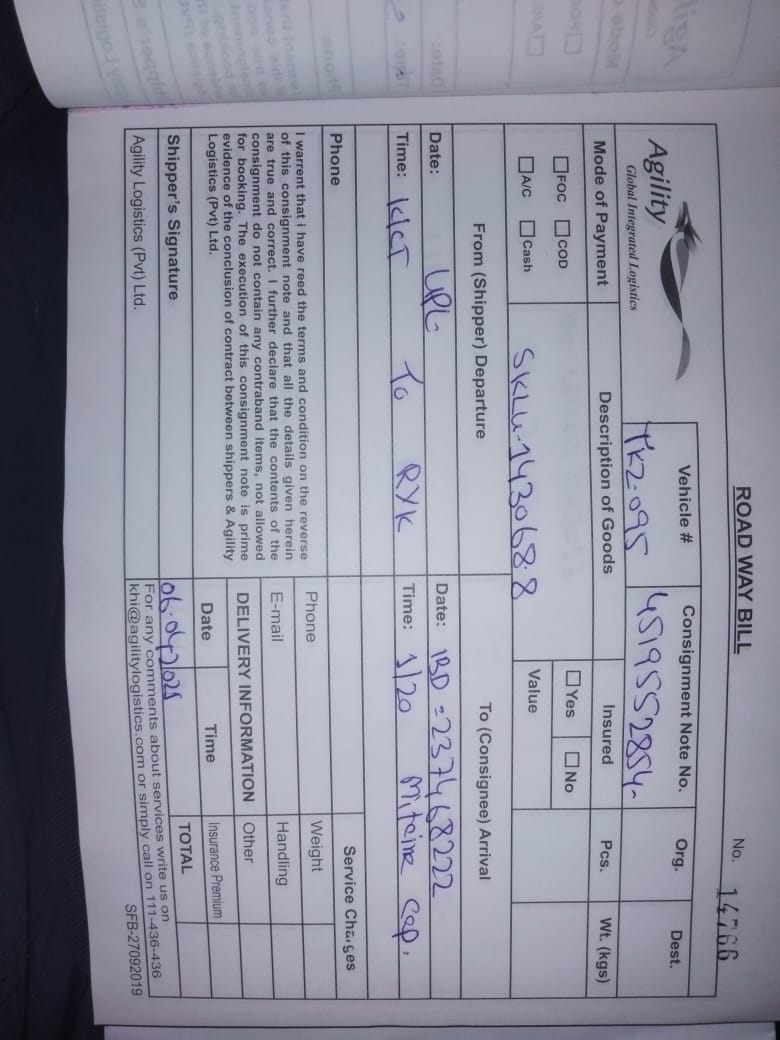 ROAD WAY BILL
No. 14766
Agility
Global Integrated Logistics
Vehicle #
TKZ-095
Consignment Note No.
4519552854-
Org.
Dest.
Mode of Payment
Description of Goods
Insured
Pcs.
Wt. (kgs)
FOC COD
Yes No
A/C Cash
SKLU-143068-8
Value
From (Shipper) Departure
To (Consignee) Arrival
Date: UPL
Date: IBD =237468222
Time: KICT To RYK
Time: 1/20 Cap.
Service Charges
Phone
Phone
Weight
I warrent that i have reed the terms and condition on the reverse
of this consignment note and that all the details given herein
are true and correct. I further declare that the contents of the
consignment do not contain any contraband items, not allowed
for booking. The execution of this consignment note is prime
evidence of the conclusion of contract between shippers & Agility
Logistics (Pvt) Ltd.
E-mail
Handling
DELIVERY INFORMATION
Other
Date
Time
Insurance Premium
Shipper's Signature
06-04-2025
TOTAL
Agility Logistics (Pvt) Ltd.
For any comments about services write us on
khi@agilitylogistics.com or simply call on 111-436-436
SFB-27092019